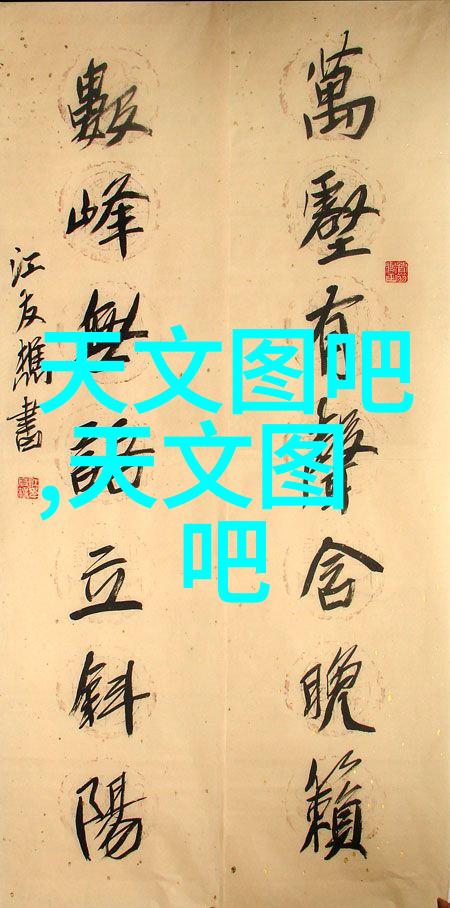 萬壑有聲含晚籟
數峰無語立斜陽
江友樵書
天文图吧
,天文图
吧